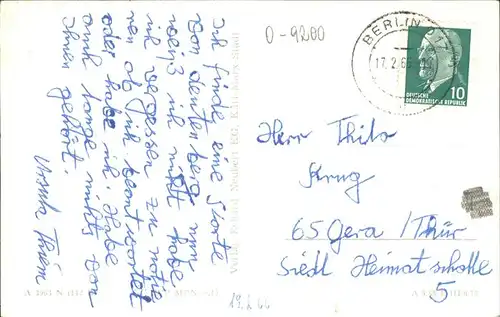 Ich finde eine Karte
von deutenberg nun
weiß ich nicht habe
ich vergessen zu notie
ren ob ich beantwortet
oder habe ich. Habe
auch lange nichts von
Ihnen gehört.
Ursula Thiem
Verlag Erhard Neubert KG, Karl-Marx-Stadt
0-9200
BERLIN
17.2.66
10
DEUTSCHE
DEMOKRATISCHE REPUBLIK
Herr Thilo
Krug
65 Gera /Thür
Siedl Heimatscholle
5
19.2.66